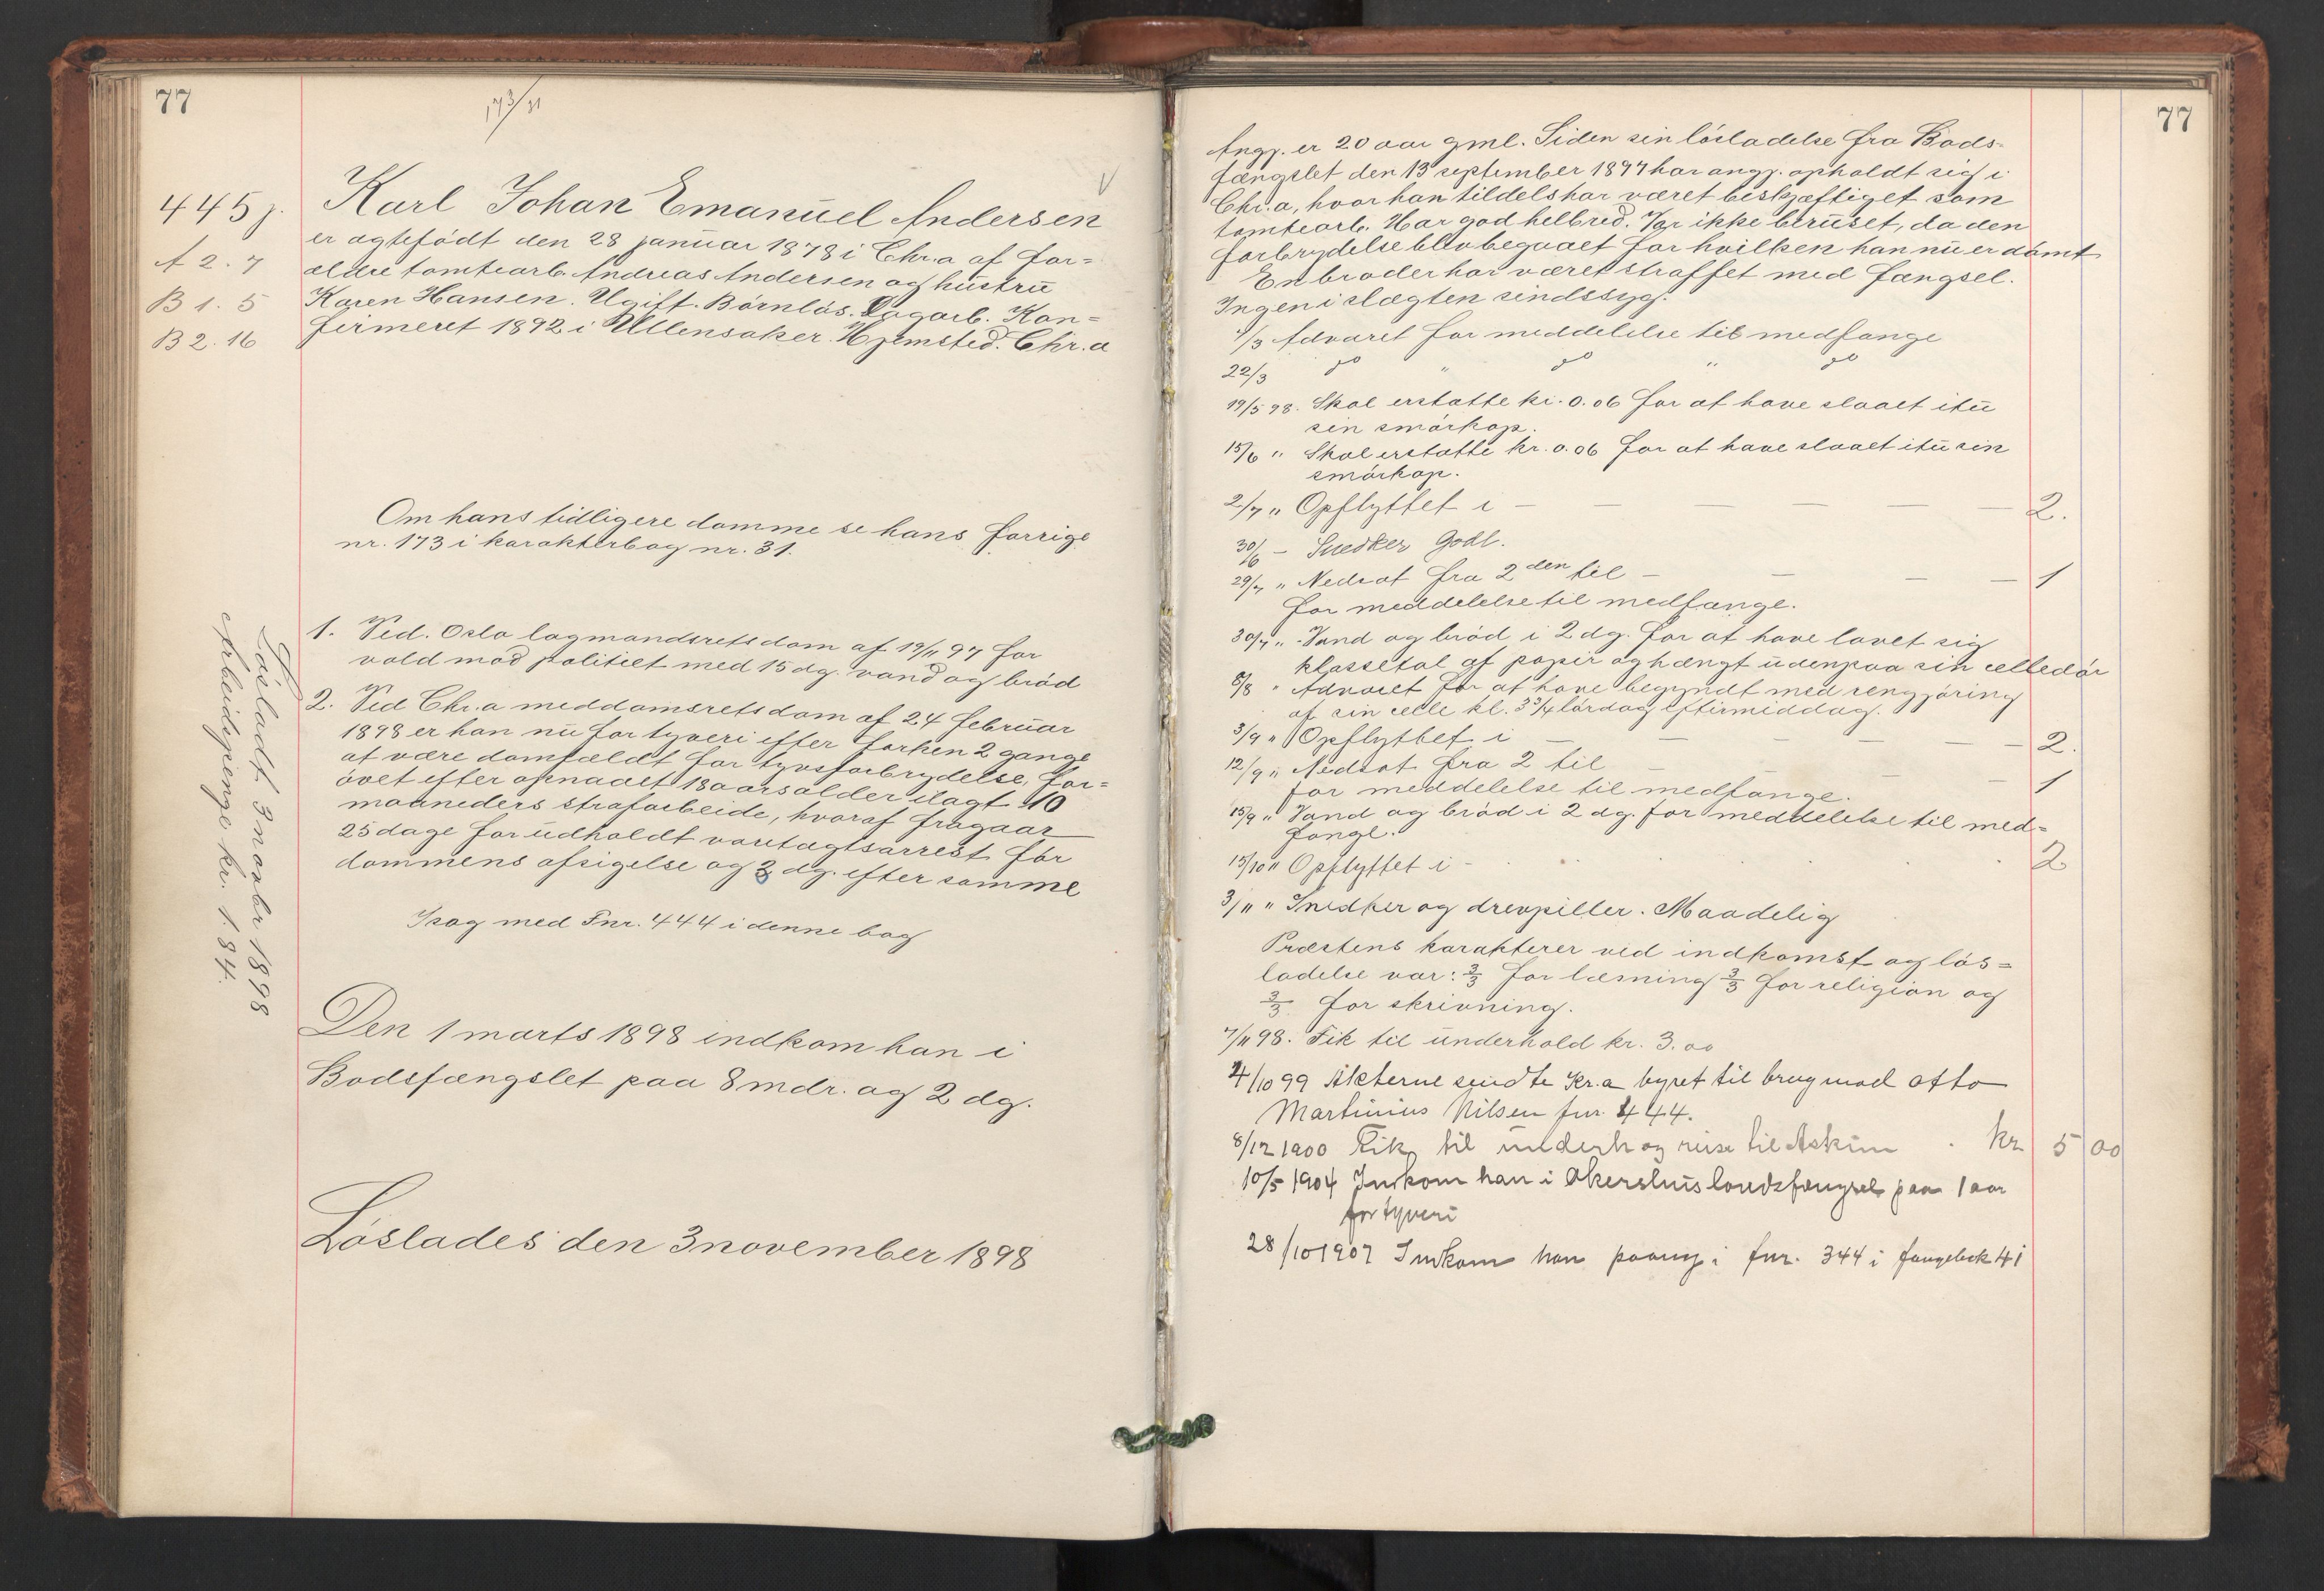 77
173/31
445 j.
A 2. 7
B 1. 5
B 2. 16
Karl Johan Emanuel Andersen
er ægtefödt den 28 januar 1878 i Chr.a af for=
ældre tomtearb. Andreas Andersen og hustru
Karen Hansen. Ugift. Börnlös. Dagarb. Kon=
firmeret 1892 i Ullensaker. Hjemsted. Chr.a
Om hans tidligere domme se hans forrige
nr. 173 i karakterbog nr. 31.
1. Ved. Oslo lagmandsrets dom af 19/11 97 for
vold mod politiet med 15 dg. vand og bröd
2. Ved Chr.a meddomsrets dom af 24 februar
1898 er han nu for tyveri efter forhen 2 gange
at være domfældt for tyvsforbrydelse, for=
övet efter opnaaet 18 aarsalder ilagt 10
maaneders strafarbeide, hvoraf fragaar
25 dage for udholdt varetægtsarrest för
dommens afsigelse og 3 dg. efter samme
Isag med Fnr. 444 i denne bog
Den 1 marts 1898 indkom han i
Bodsfængslet paa 8 mdr. og 2 dg.
Löslades den 3 november 1898
Lösladt 3 novbr 1898
Arbeidspenge kr. 1.84.
77
Angj. er 20 aar gml. Siden sin lösladelse fra Bods-
fængslet den 13 september 1897 har angj. opholdt sig i
Chr.a, hvor han tildels har været beskjæftiget som
tomtearb. Har god helbred. Var ikke beruset, da den
forbrydelse blev begaaet for hvilken han nu er dömt
En broder har været straffet med fængsel.
Ingen i slægten sindssyg.
/3 Advaret for meddelelse til medfange
22/3 do " do " do
19/5 98. Skal erstatte kr. 0.06 for at have slaaet itu
sin smörkop.
15/6 " Skal erstatte kr. 0.06 for at have slaaet itu sin
smörkop.
2/7 " Opflyttet i — — — — — 2.
30/6 – Snedker Godt.
29/7 " Nedsat fra 2den til — — — — 1
for meddelelse til medfange.
30/7 " Vand og bröd i 2 dg. for at have lavet sig
klassetal af papir og hængt udenpaa sin celledör
8/8 " Advaret for at have begyndt med rengjöring
af sin celle kl. 3 3/4 lördag eftermiddag.
3/9 " Opflyttet i — — — — — 2.
12/9 " Nedsat fra 2 til — — — 1
for meddelelse til medfange.
15/9 " Vand og bröd i 2 dg. for meddelelse til med=
fange.
15/10 " Opflyttet i - . . . . 2
3/11 " Snedker og drevpiller. Maadelig
Præstens karakterer ved indkomst og lös=
ladelse var: 3/3 for læsning 3/3 for religion og
3/3 for skrivning.
7/11 98. Fik til underhold kr. 3.00
4/10 99 Akterne sendte Kr.a byret til brug mod Otto
Martinius Nilsen fnr. 444.
8/12 1900 Fik til underh og reise til Askim . kr 5 00
10/5 1904 Indkom han i Akershus landsfængsel paa 1 aar
for tyveri
28/10 1907 Indkom han paany i fnr. 344 i fangebok 41